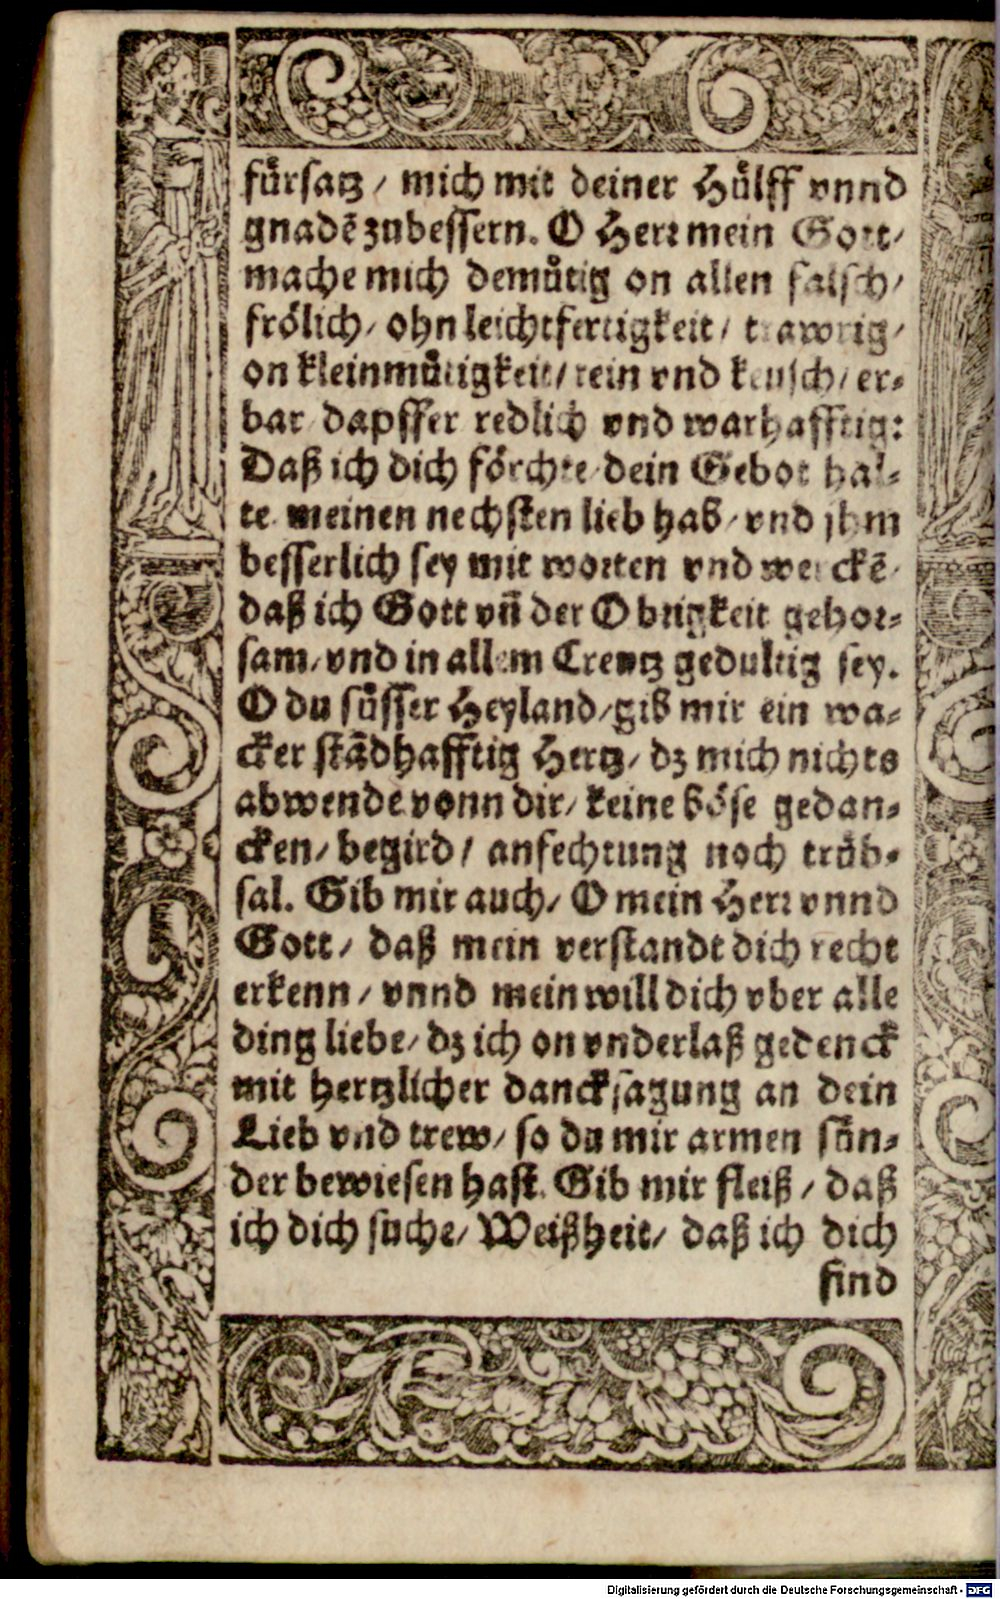 fuͤrsatz / mich mit deiner Huͤlff vnnd
gnadē zubessern. O Herr mein Gott /
mache mich demuͤtig on allen falsch /
froͤlich / ohn leichtfertigkeit / trawrig /
on kleinmuͤtigkeit / rein vnd keusch / er-
bar dapffer redlich vnd warhafftig:
Daß ich dich foͤrchte / dein Gebot hal-
te meinen nechsten lieb hab / vnd jhm
besserlich sey mit worten vnd werckē /
daß ich Gott vñ der Obrigkeit gehor-
sam / vnd in allem Creutz gedultig sey.
O du suͤsser Heyland / gib mir ein wa-
cker stādhafftig Hertz / dz mich nichts
abwende vonn dir / keine boͤse gedan-
cken / begird / anfechtung noch truͤb-
sal. Gib mir auch / O mein Herr vnnd
Gott / daß mein verstandt dich recht
erkenn / vnnd mein will dich vber alle
ding liebe / dz ich on vnderlaß gedenck
mit hertzlicher dancksagung an dein
Lieb vnd trew / so du mir armen suͤn-
der bewiesen hast. Gib mir fleiß / daß
ich dich suche / Weißheit / daß ich dich
find
Digitalisierung gefördert durch die Deutsche Forschungsgemeinschaft - DFG